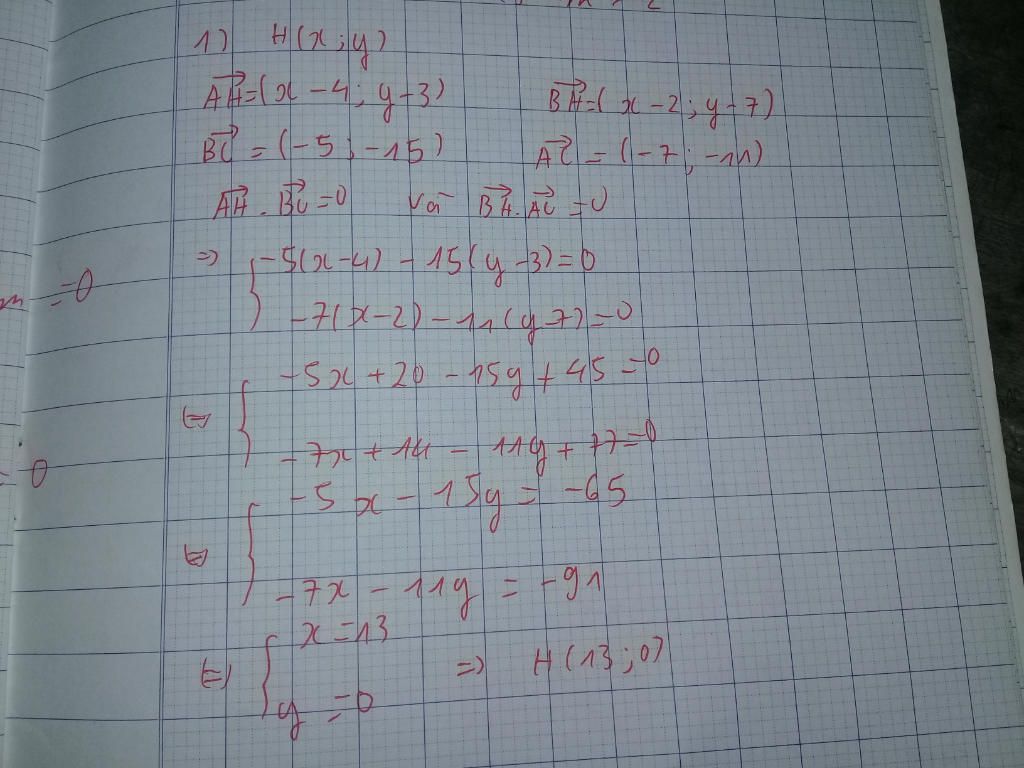 1) H(x;y)
AH→=(x-4; y-3) BH→=(x-2; y-7)
BC→=(-5; -15) AC→=(-7; -11)
AH→.BC→=0 và BH→.AC→=0
=> { -5(x-4) - 15(y-3)=0
-7(x-2) - 11(y-7)=0
=0
<=> { -5x + 20 - 15y + 45 =0
-7x + 14 - 11y + 77=0
0
<=> { -5x - 15y = -65
-7x - 11y = -91
<=> { x=13
y=0 => H(13;0)